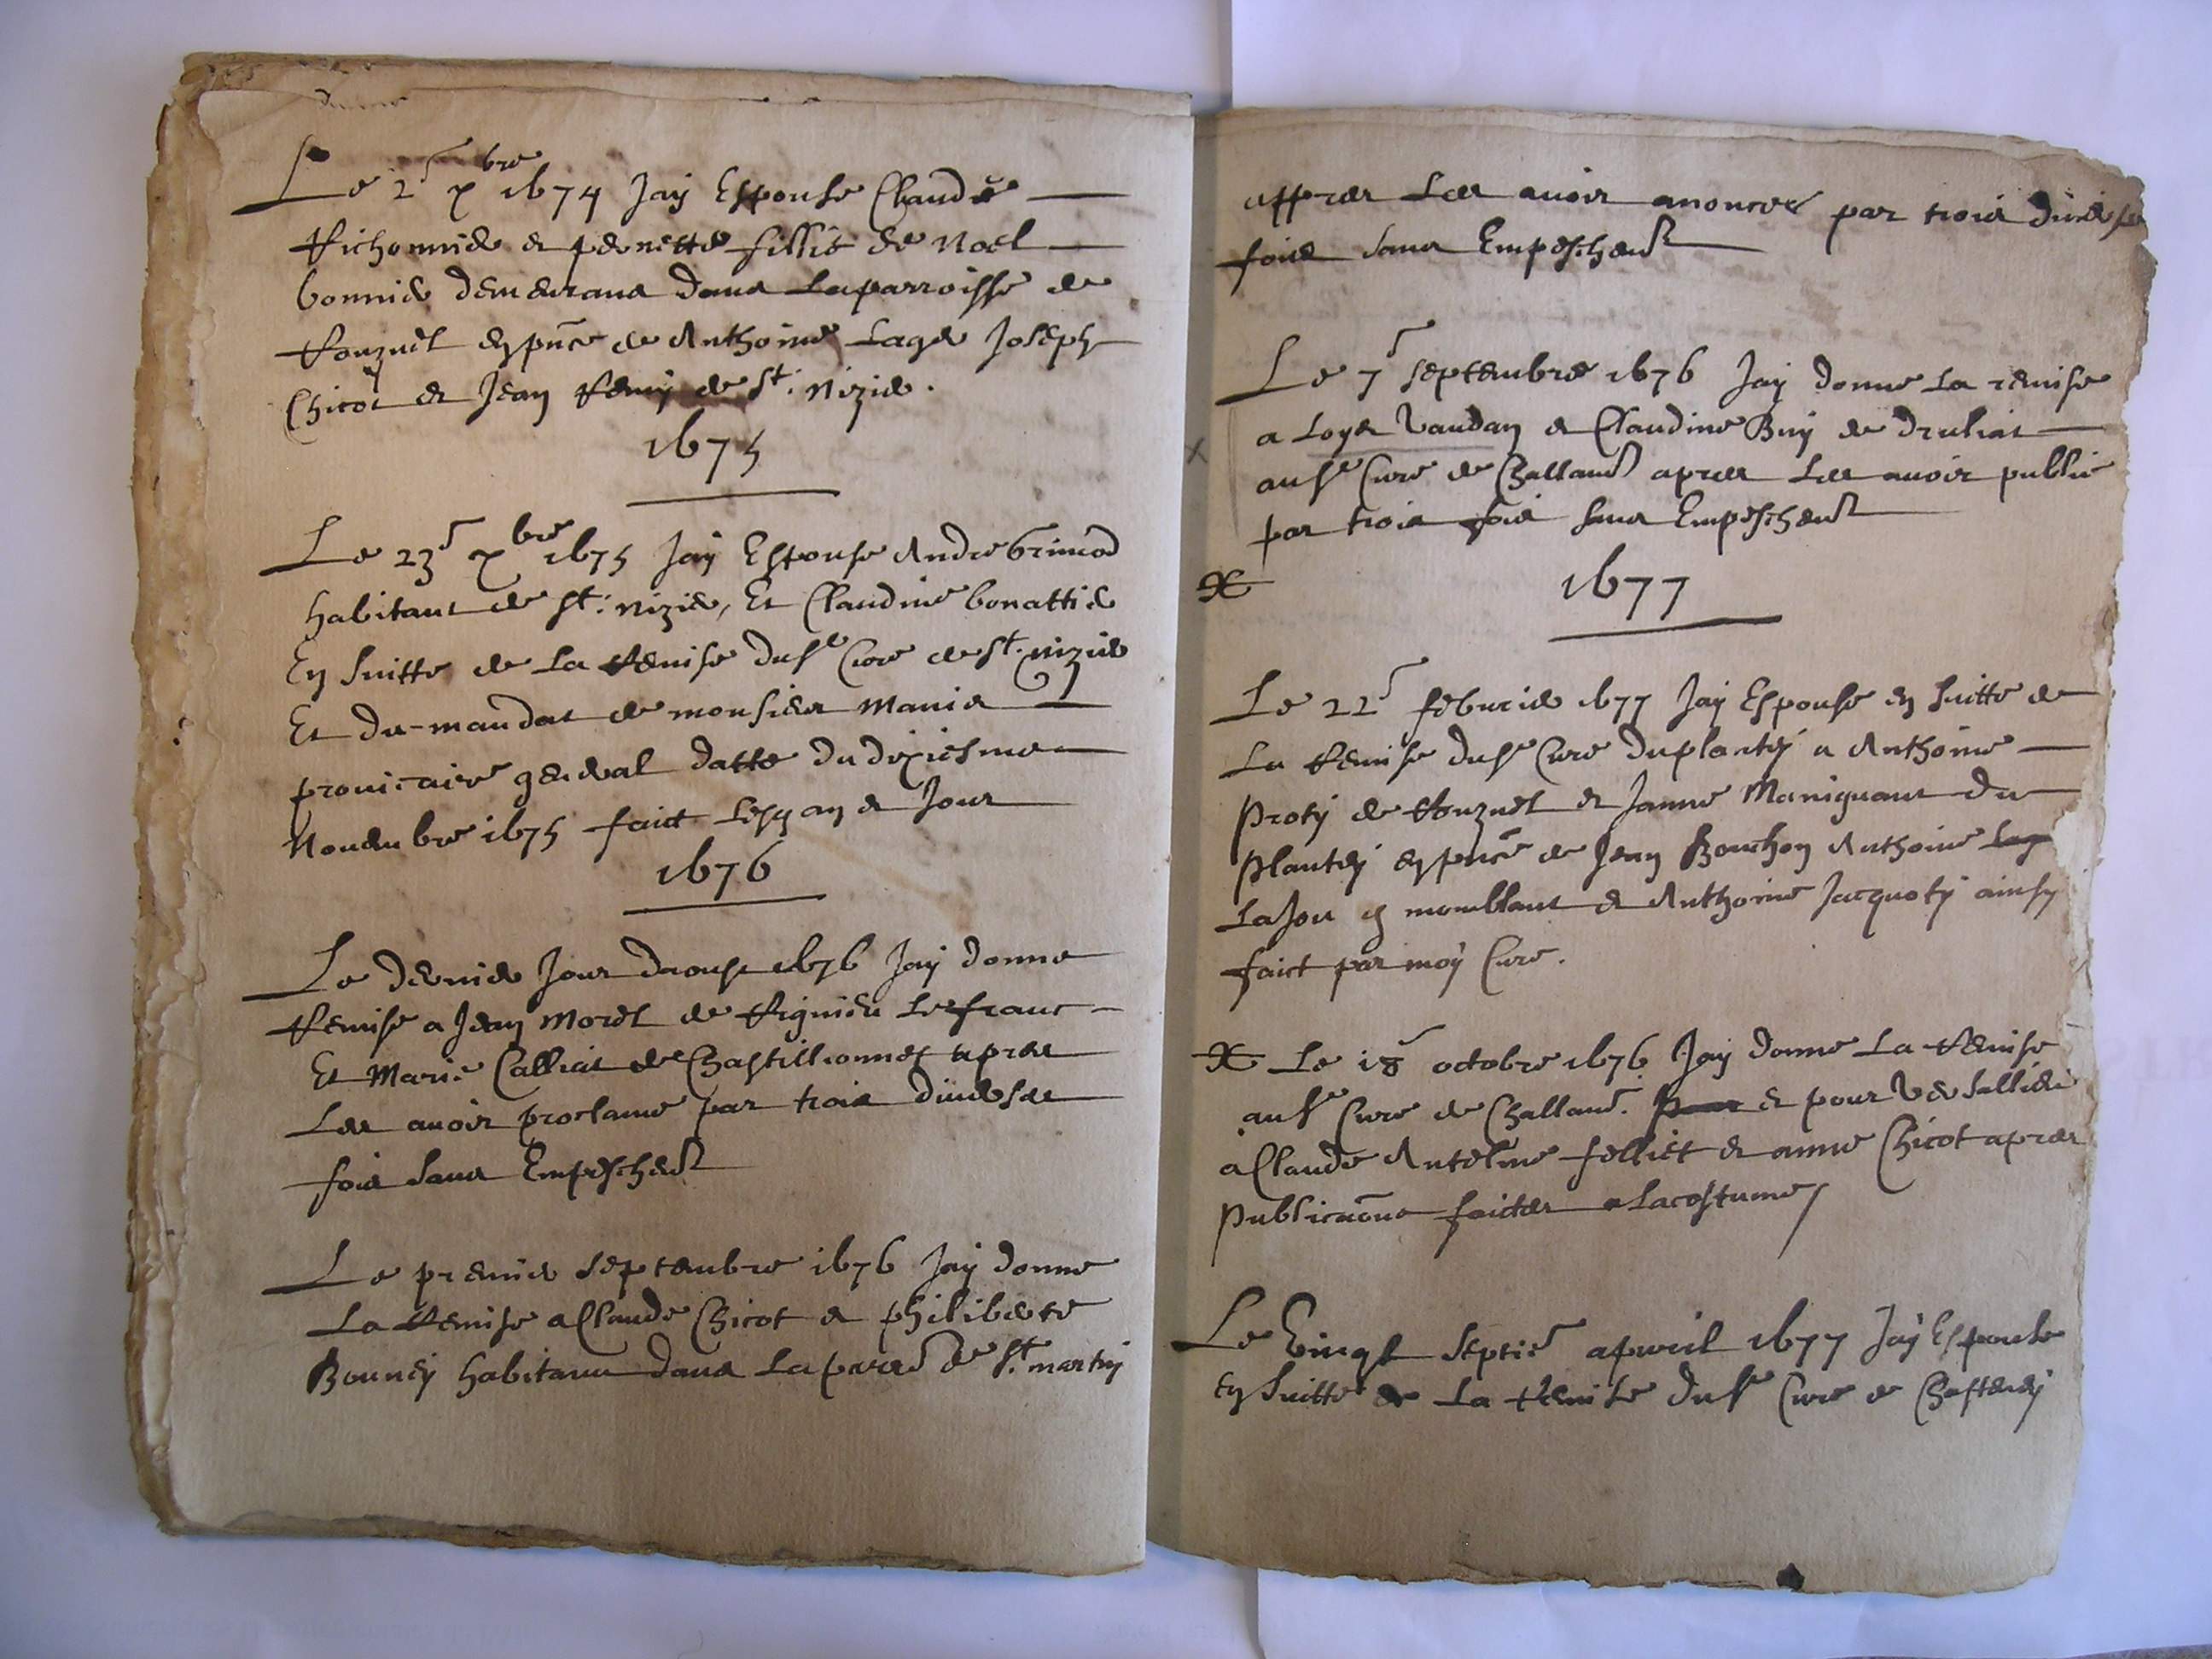 Le 2e xbre 1674 Jay Espouse Claude
Richonnier et pernette fillie de Noel
bonnier demeurans dans la parroisse de
Ronzuel en pnce de Anthoine Lager Joseph
Chicot et Jean Remy de St. Nizier.
1675
Le 23e xbre 1675 Jay Espouse Andre Grimod
habitant de St. nizier, Et Claudine bonattier
En suitte de la Remise du sr Cure de St. nizier
Et du mandat de monsieur Manier
provicaire general datte du dixiesme
Novembre 1675 faict les an et Jour
1676
Le dernier Jour daoust 1676 Jay donne
Remise a Jean Morel de Rignieu le franc
Et Marie Calliat de Chastillionnes apres
Les avoir proclame par trois diverses
fois sans Empeschent
Le premier septembre 1676 Jay donne
La Remise a Claude Chicot et philiberte
Bouney habitans dans la parre de St. martin
appres Les avoir anonces par trois diverses
fois sans Empeschent
Le 7e septembre 1676 Jay donne la remise
a Loys Vaudan et Claudine Buy de druliat
au sr Cure de Challant apres Les avoir publie
par trois fois sans Empeschent
1677
Le 22e febvrier 1677 Jay Espouse en suitte de
La Remise du sr Cure du plantey a Anthoine
Proty de Ronzuel et Janne Maniguant du
Plantey en pnce de Jean Bouchon Anthoine Lag
Lajou et momblant et Anthoine Jacquoty ainsy
faict par moy Cure.
Le 18e octobre 1676 Jay donne La Remise
au sr Cure de Challant. pour et pour Versallieu
a Claude Antelme felliet et anne Chicot apres
Publicaons faictes a Lacostume
Le Vingt septie apvril 1677 Jay Espouse
En suitte de La Remise du sr Cure de Chastenay